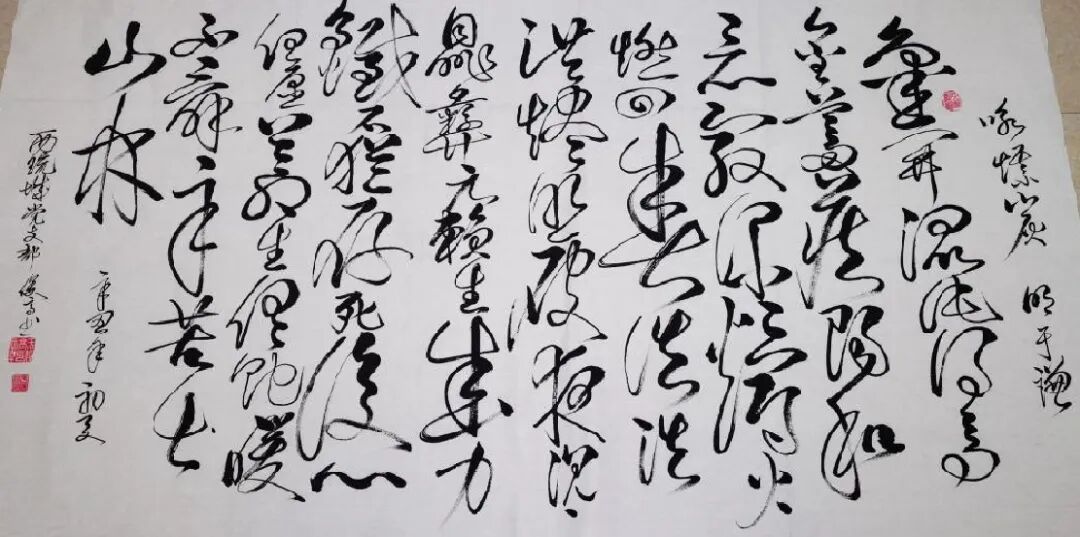 咏煤炭 明于谦
凿开混沌得乌
金蓄藏阳和
意最深爝火
燃回春浩浩
洪炉照破夜沉沉
鼎彝元赖生成力
铁石犹存死后心
但愿苍生俱饱暖
不辞辛苦出
山林
辛丑年初夏
党支部